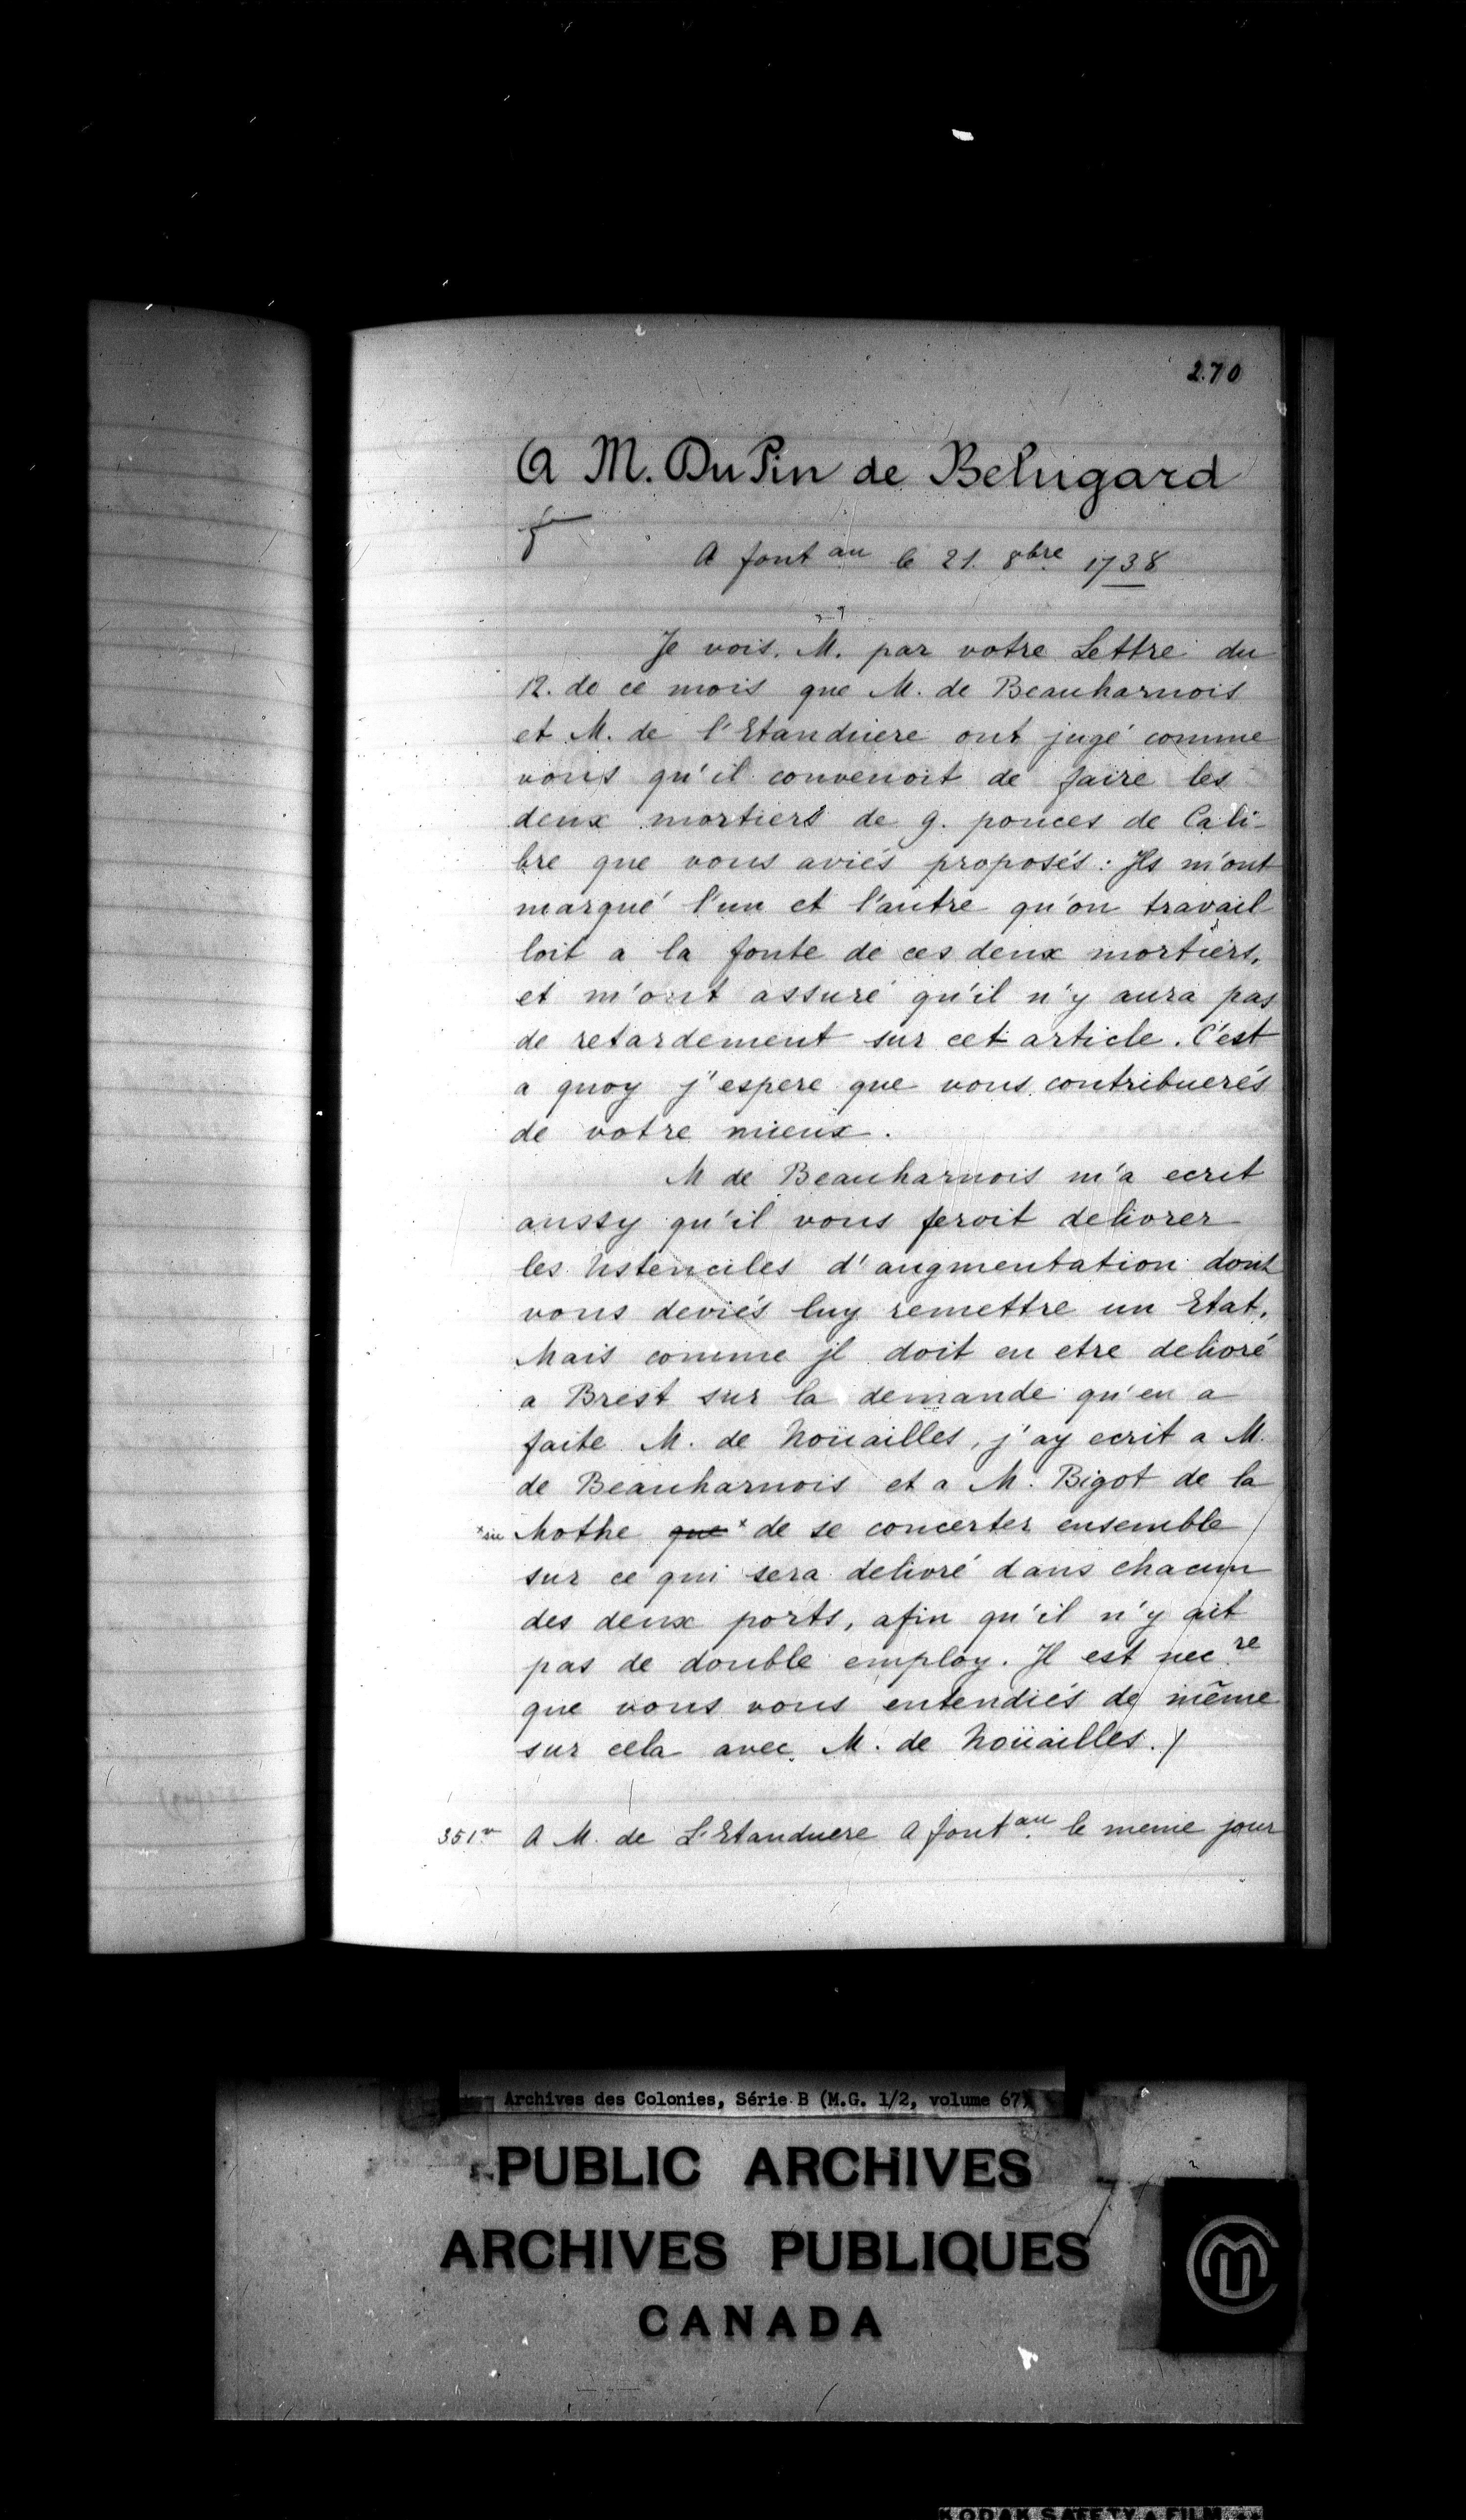 270
A M. Du Pin de Belugard
A font au le 21. 8bre 1738
Je vois. M. par votre Lettre du
12. de ce mois que M. de Beauharnois
et M. de l'Etanduere ont jugé comme
vous qu'il convenoit de faire les
deux mortiers de 9. pouces de Cali-
bre que vous aviés proposés : Ils m'ont
marqué l'un et l'autre qu'on travail
loit a la fonte de ces deux mortiers,
et m'ont assuré qu'il n'y aura pas
de retardement sur cet article. C'est
a quoy j'espere que vous contribuerés
de votre mieux.
M de Beauharnois m'a ecrit
aussy qu'il vous feroit delivrer
les Ustenciles d'augmentation dont
vous deviés luy remettre un Etat,
Mais comme jl doit en etre delivré
a Brest sur la demande qu'en a
faite M. de Noüailles, j'ay ecrit a M.
de Beauharnois et a M. Bigot de la
Mothe que x de se concerter ensemble
sur ce qui sera delivré dans chacun
des deux ports, afin qu'il n'y ait
pas de double employ. Il est nec.re
que vous vous entendiés de même
sur cela avec M. de Noüailles. /
351v A M. de L'Etanduere A font au. le meme jour
Archives des Colonies, Série B (M.G. 1/2, volume 67)
PUBLIC ARCHIVES
ARCHIVES PUBLIQUES
CANADA
KODAK SAFETY FILM